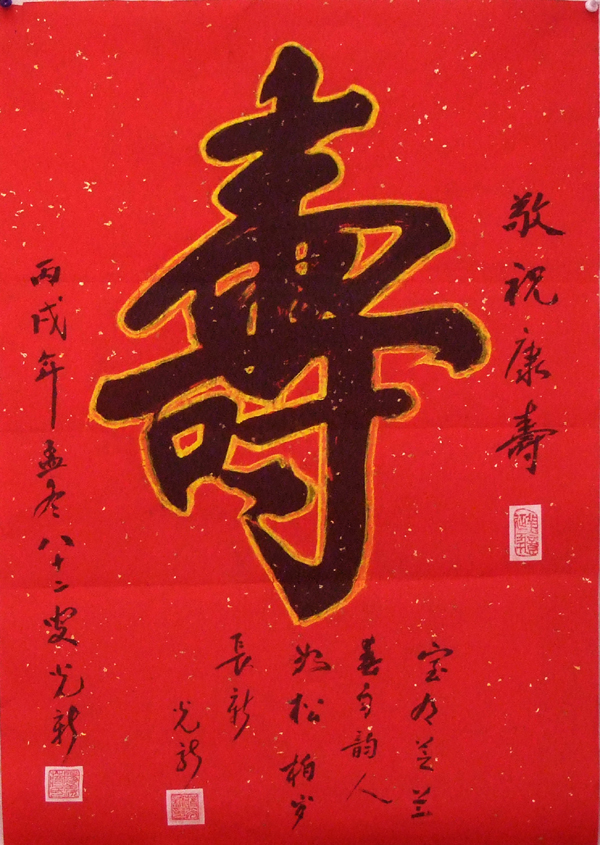 敬祝康壽
壽
室有芝兰
春自韵人
如松柏岁
長新
光新
丙戌年孟冬八十二叟光新